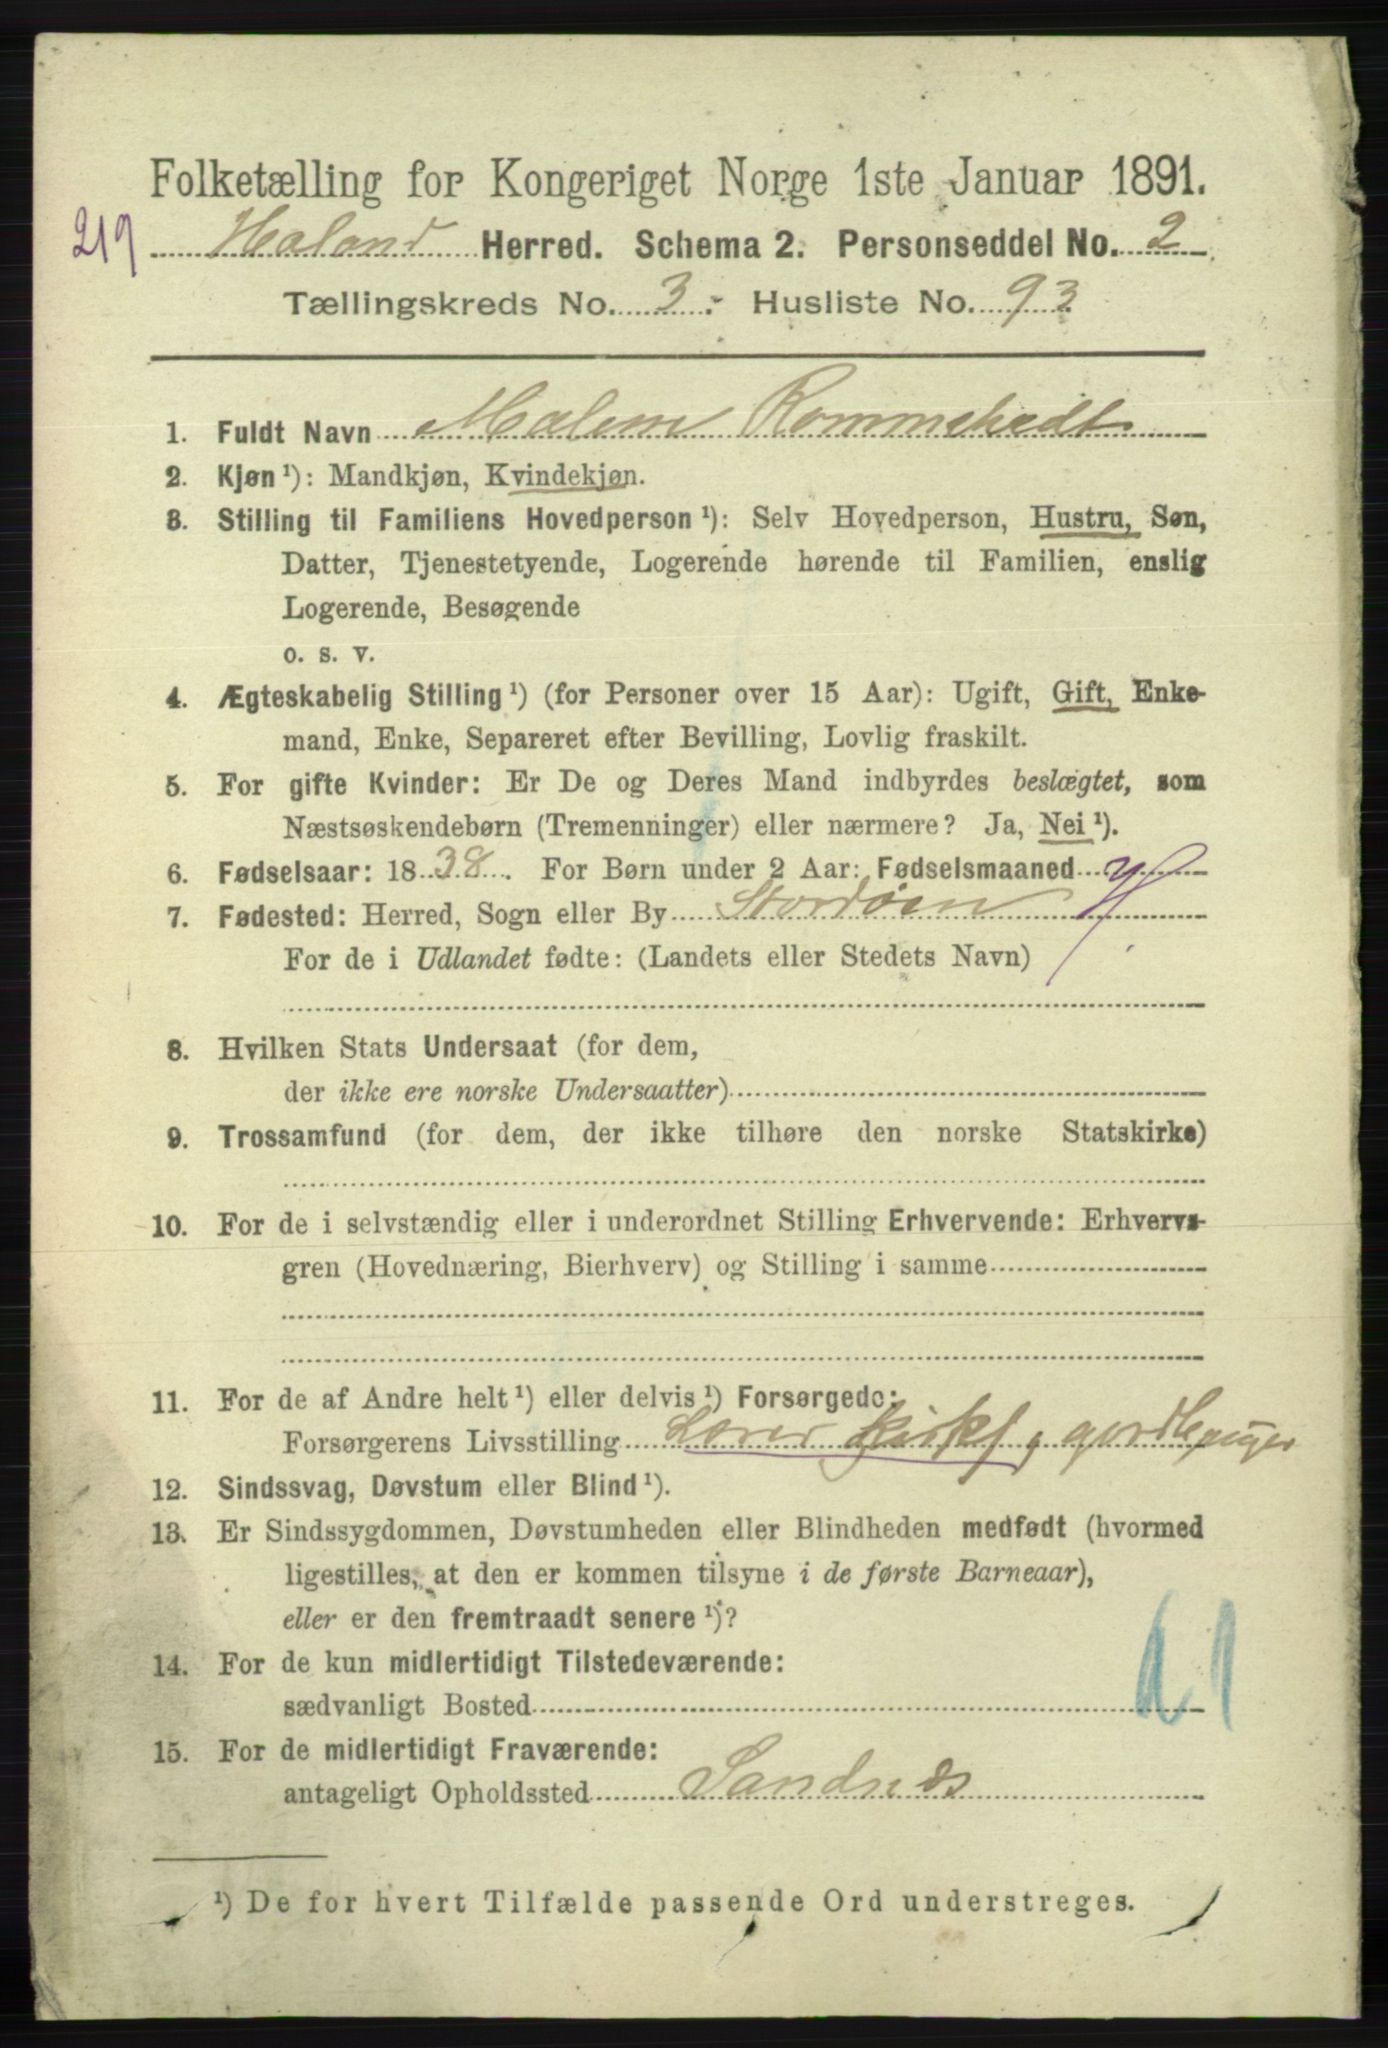 Folketælling for Kongeriget Norge 1ste Januar 1891.
219 Haland Herred. Schema 2. Personseddel No. 2
Tællingskreds No. 3. Husliste No. 93
1. Fuldt Navn Malene Rommetvedt
2. Kjøn ¹): Mandkjøn, Kvindekjøn.
3. Stilling til Familiens Hovedperson ¹): Selv Hovedperson, Hustru, Søn,
Datter, Tjenestetyende, Logerende hørende til Familien, enslig
Logerende, Besøgende
o. s. v.
4. Ægteskabelig Stilling ¹) (for Personer over 15 Aar): Ugift, Gift, Enke-
mand, Enke, Separeret efter Bevilling, Lovlig fraskilt.
5. For gifte Kvinder: Er De og Deres Mand indbyrdes beslægtet, som
Næstsøskendebørn (Tremenninger) eller nærmere? Ja, Nei ¹).
6. Fødselsaar: 1838. For Børn under 2 Aar: Fødselsmaaned
7. Fødested: Herred, Sogn eller By Stordøen
For de i Udlandet fødte: (Landets eller Stedets Navn)
8. Hvilken Stats Undersaat (for dem,
der ikke ere norske Undersaatter)
9. Trossamfund (for dem, der ikke tilhøre den norske Statskirke)
10. For de i selvstændig eller i underordnet Stilling Erhvervende: Erhvervs-
gren (Hovednæring, Bierhverv) og Stilling i samme
11. For de af Andre helt ¹) eller delvis ¹) Forsørgede:
Forsørgerens Livsstilling Lærer
12. Sindssvag, Døvstum eller Blind ¹).
13. Er Sindssygdommen, Døvstumheden eller Blindheden medfødt (hvormed
ligestilles, at den er kommen tilsyne i de første Barneaar),
eller er den fremtraadt senere ¹)?
14. For de kun midlertidigt Tilstedeværende:
sædvanligt Bosted
15. For de midlertidigt Fraværende:
antageligt Opholdssted Sandnæs
¹) De for hvert Tilfælde passende Ord understreges.